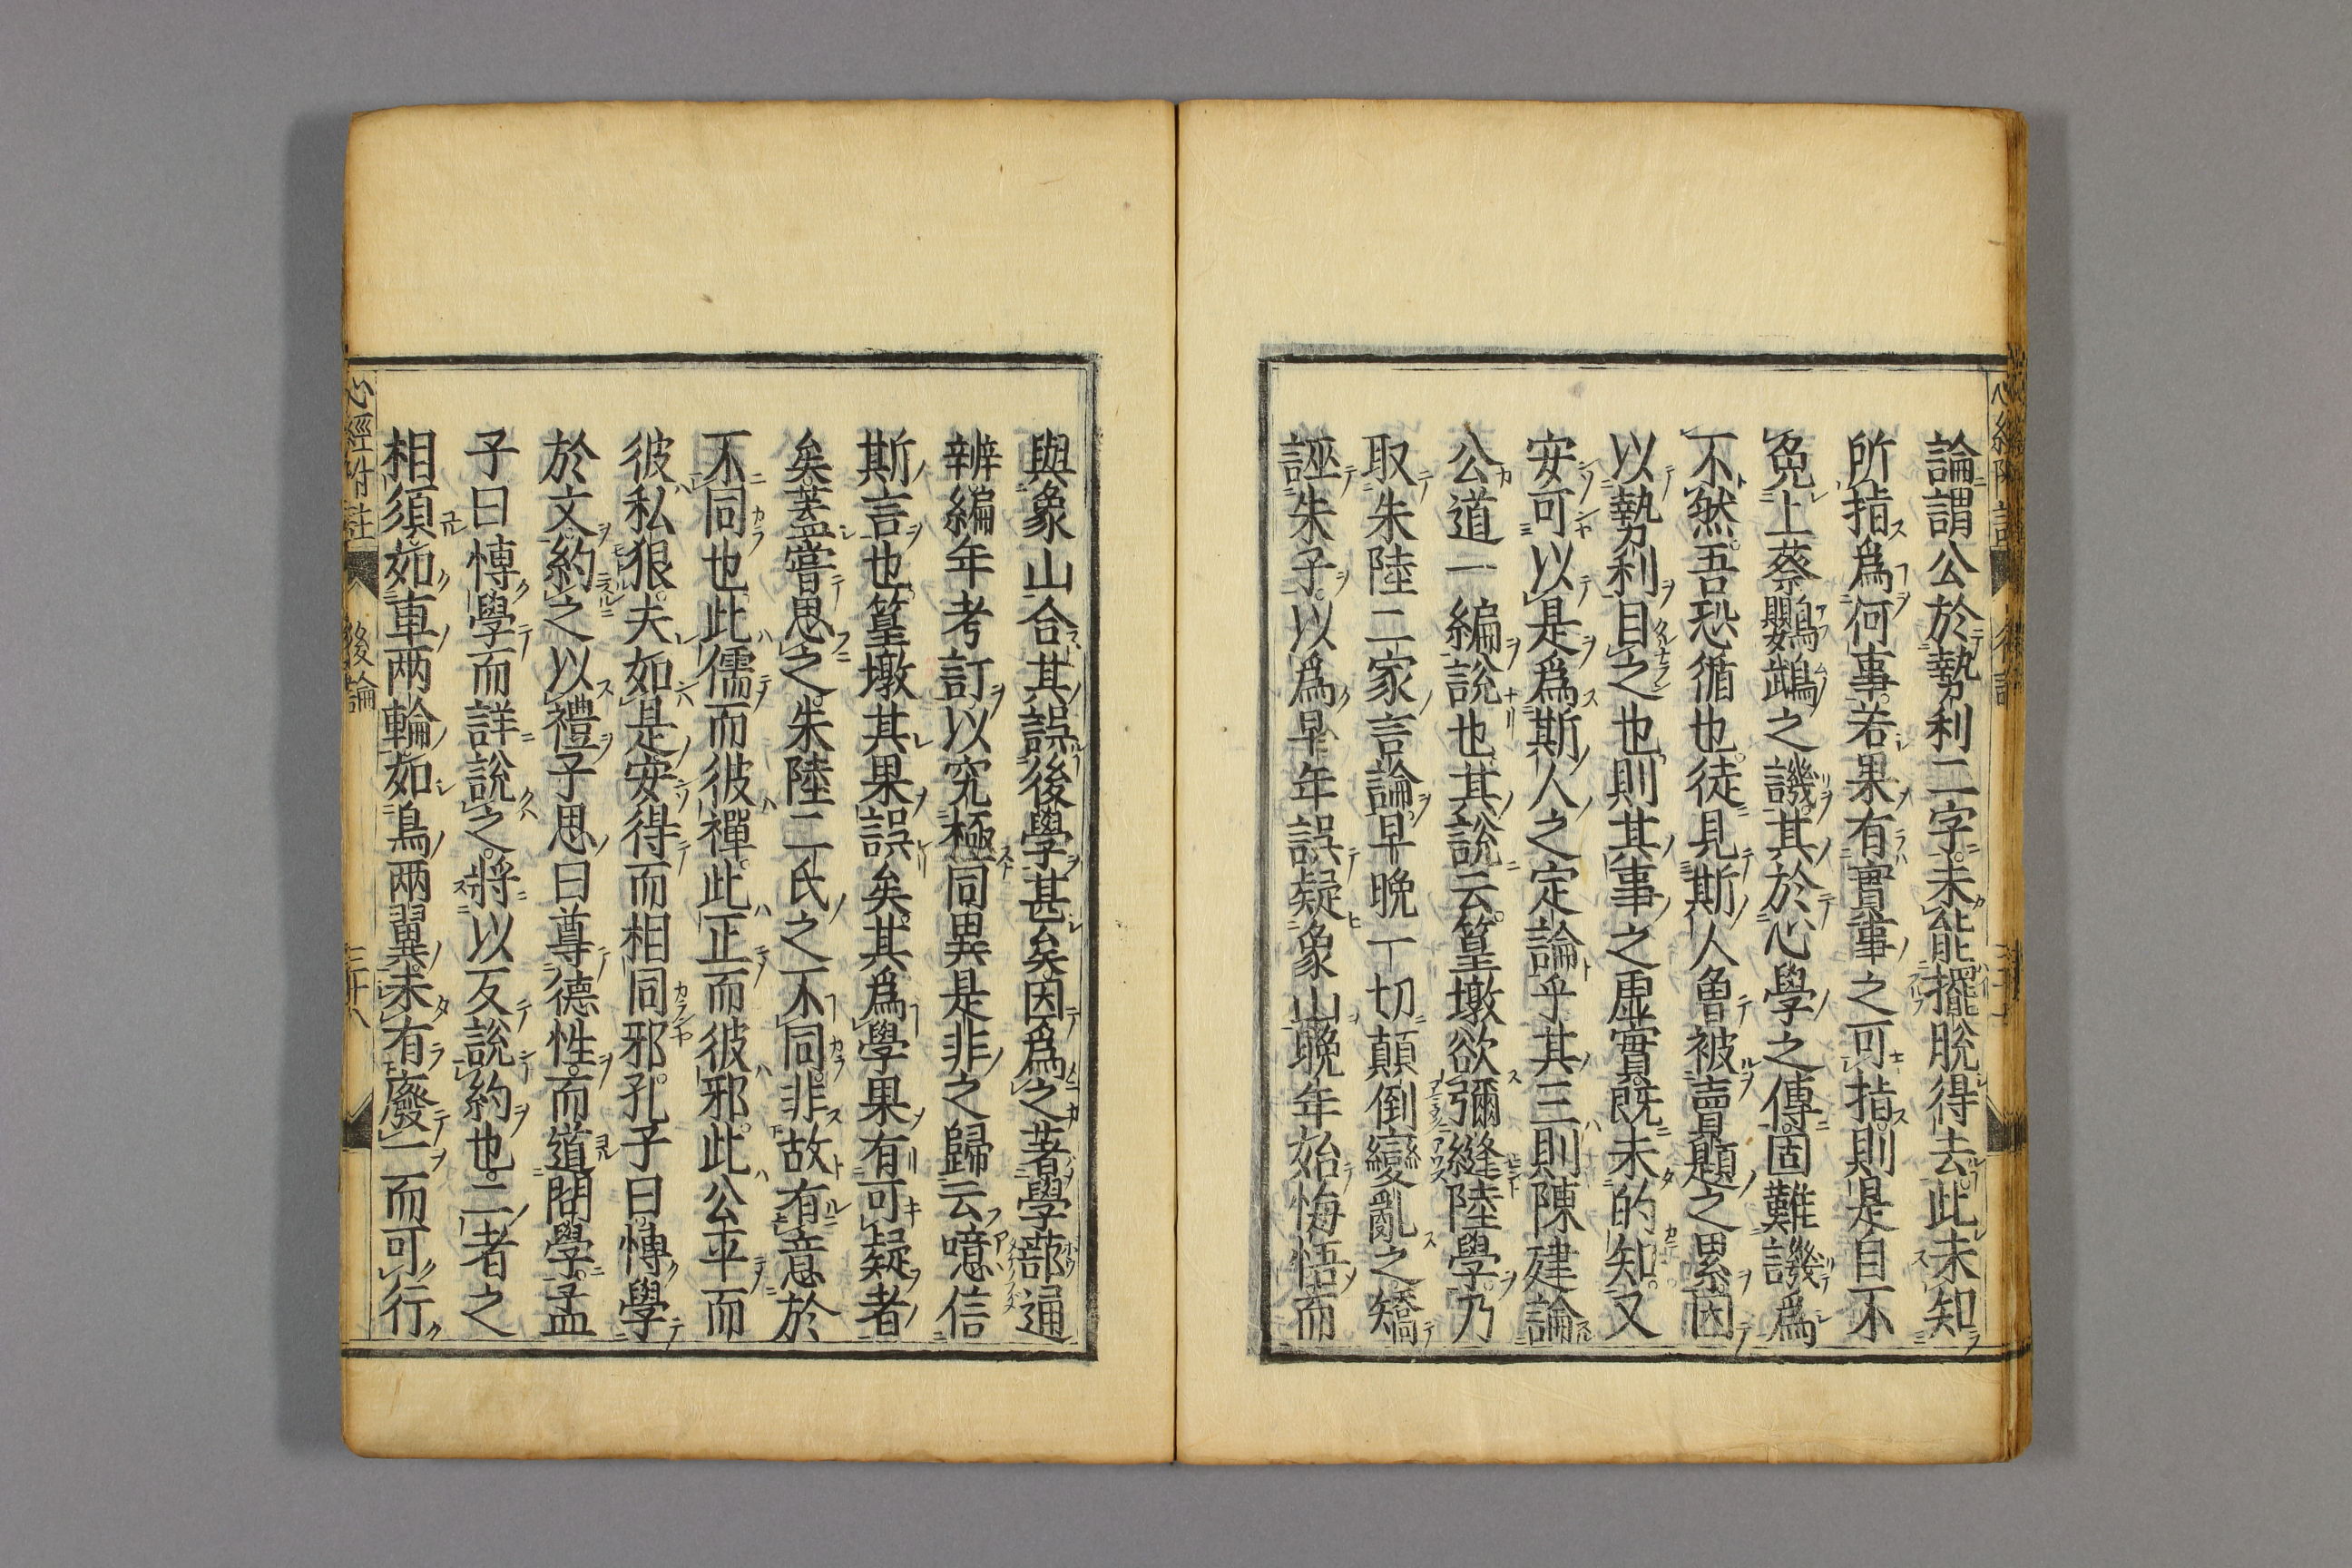 論謂公於勢利二字未能擺脫得去此未知
所指爲何事若果有實事之可指則是自不
免上蔡鸚鵡之譏其於心學之傳固難譏爲
不然吾恐循也徒見斯人曾被賣題之累因
以勢利目之也則其事之虛實既未的知又
安可以是爲斯人之定論乎其三則陳建論
公道一編說也其說云篁墩欲彌縫陸學乃
取朱陸二家言論早晚一切顛倒變亂之矯
誣朱子以爲早年誤疑象山晩年始悔悟而
與象山合其誤後學甚矣因爲之著學蔀通
辨編年考訂以究極同異是非之歸云噫信
斯言也篁墩其果誤矣其爲學果有可疑者
矣蓋嘗思之朱陸二氏之不同非故有意於
不同也此儒而彼禪此正而彼邪此公平而
彼私狠夫如是安得而相同邪孔子曰博學
於文約之以禮子思曰尊德性而道問學孟
子曰博學而詳說之將以反說約也二者之
相須如車兩輪如鳥兩翼未有廢一而可行
心經附註 後論 三十八